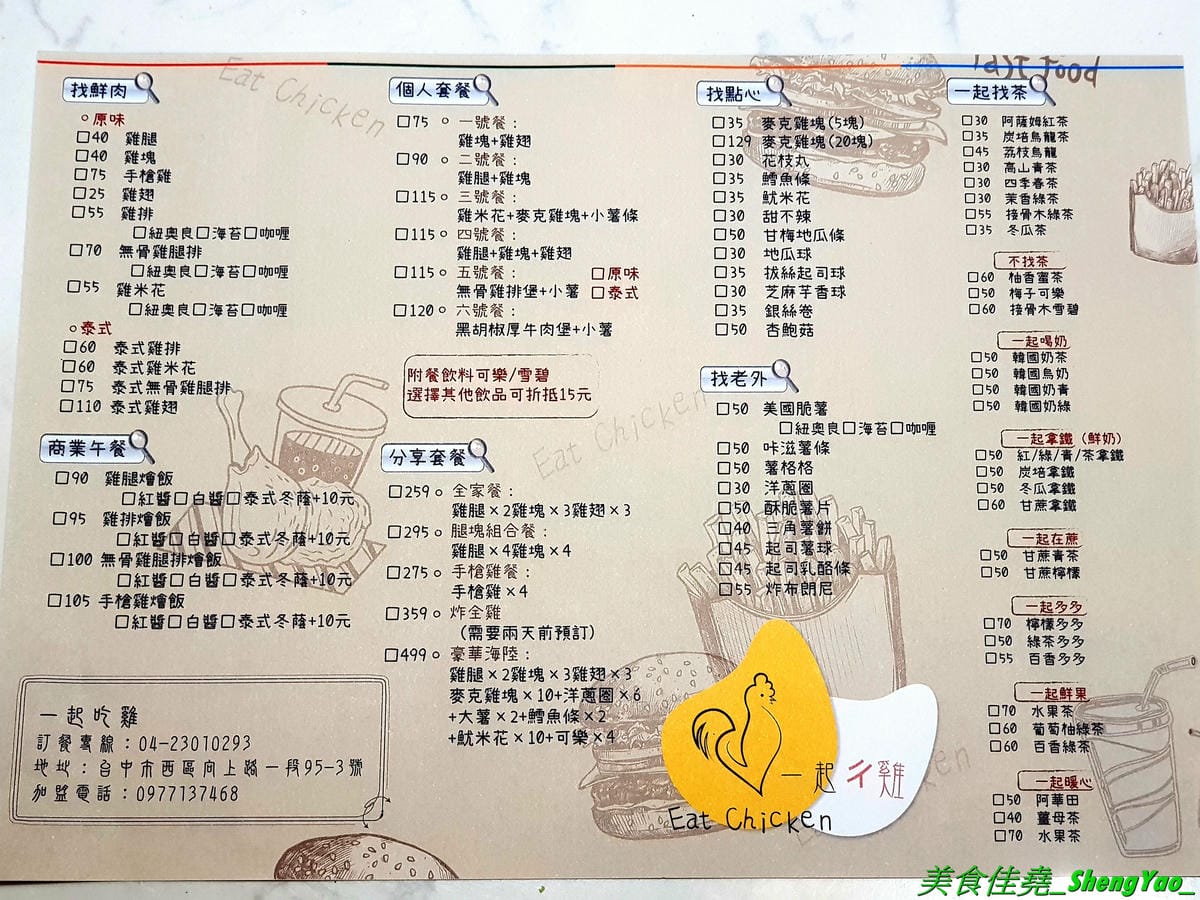 Eat Chicken
Fast Food
找鮮肉
原味
□40 雞腿
□40 雞塊
□75 手槍雞
□25 雞翅
□55 雞排
□紐奧良□海苔□咖喱
□70 無骨雞腿排
□紐奧良□海苔□咖喱
□55 雞米花
□紐奧良□海苔□咖喱
泰式
□60 泰式雞排
□60 泰式雞米花
□75 泰式無骨雞腿排
□110 泰式雞翅
商業午餐
□90 雞腿燴飯
□紅醬□白醬□泰式冬蔭+10元
□95 雞排燴飯
□紅醬□白醬□泰式冬蔭+10元
□100 無骨雞腿排燴飯
□紅醬□白醬□泰式冬蔭+10元
□105 手槍雞燴飯
□紅醬□白醬□泰式冬蔭+10元
一起吃雞
訂餐專線：04-23010293
地址：台中市西區向上路一段95-3號
加盟電話：0977137468
個人套餐
□75。 一號餐：
雞塊+雞翅
□90。 二號餐：
雞腿+雞塊
□115。 三號餐：
雞米花+麥克雞塊+小薯條
□115。 四號餐：
雞腿+雞塊+雞翅
□115。 五號餐： □原味
無骨雞排堡+小薯 □泰式
□120。 六號餐：
黑胡椒厚牛肉堡+小薯
附餐飲料可樂/雪碧
選擇其他飲品可折抵15元
Eat Chicken
分享套餐
□259。 全家餐：
雞腿×2雞塊×3雞翅×3
□295。 腿塊組合餐：
雞腿×4雞塊×4
□275。 手槍雞餐：
手槍雞×4
□359。 炸全雞
（需要兩天前預訂）
□499。 豪華海陸：
雞腿×2雞塊×3雞翅×3
麥克雞塊×10+洋蔥圈×6
+大薯×2+鱈魚條×2
+魷米花×10+可樂×4
找點心
□35 麥克雞塊(5塊)
□129 麥克雞塊(20塊)
□30 花枝丸
□35 鱈魚條
□35 魷米花
□30 甜不辣
□50 甘梅地瓜條
□30 地瓜球
□35 拔絲起司球
□30 芝麻芋香球
□35 銀絲卷
□50 杏鮑菇
找老外
□50 美國脆薯
□紐奧良□海苔□咖喱
□50 咔滋薯條
□50 薯格格
□30 洋蔥圈
□50 酥脆薯片
□40 三角薯餅
□45 起司薯球
□45 起司乳酪條
□55 炸布朗尼
一起ㄔ雞
Eat Chicken
一起找茶
□30 阿薩姆紅茶
□35 炭焙烏龍茶
□45 荔枝烏龍
□30 高山青茶
□30 四季春茶
□30 茉香綠茶
□55 接骨木綠茶
□35 冬瓜茶
不找茶
□60 柚香蜜茶
□50 梅子可樂
□60 接骨木雪碧
一起喝奶
□50 韓國奶茶
□50 韓國烏奶
□50 韓國奶青
□50 韓國奶綠
一起拿鐵（鮮奶）
□50 紅/綠/青/茶拿鐵
□50 炭焙拿鐵
□50 冬瓜拿鐵
□60 甘蔗拿鐵
一起在蔗
□50 甘蔗青茶
□50 甘蔗檸檬
一起多多
□70 檸檬多多
□50 綠茶多多
□55 百香多多
一起鮮果
□70 水果茶
□60 葡萄柚綠茶
□60 百香綠茶
一起暖心
□50 阿華田
□40 薑母茶
□70 水果茶
美食佳堯_ShengYao_